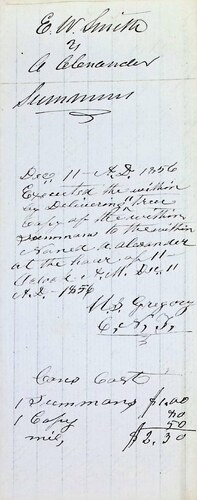 E. W. Smith
vs
A Alexander
Summons
Dec 11 - A.D. 1856
Executed the within
by Delivering a true
Copy of the within
Summons to the within
Named A Alexander
at the hour of 11 -
Aclock A.M. Dec 11 -
A.D. - 1856
M. S. Gregory
C. N. T.
Cons Cost
1 Summons $1.00
1 Copy
mil, 50
$2.30